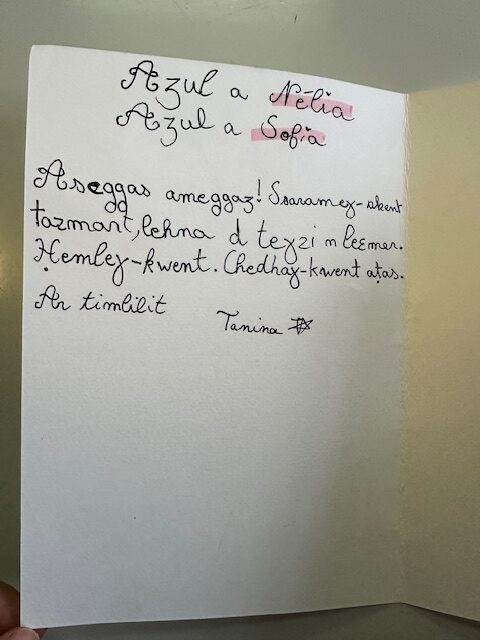 Azul a Nélia
Azul a Sofia
Aseggas ameggaz! Ssarameɣ-akent
tazmart, lehna d teɣzi n leɛmer.
Ḥemleɣ-kwent. Chedhaɣ-kwent aṭas.
Ar timlilit
Tanina